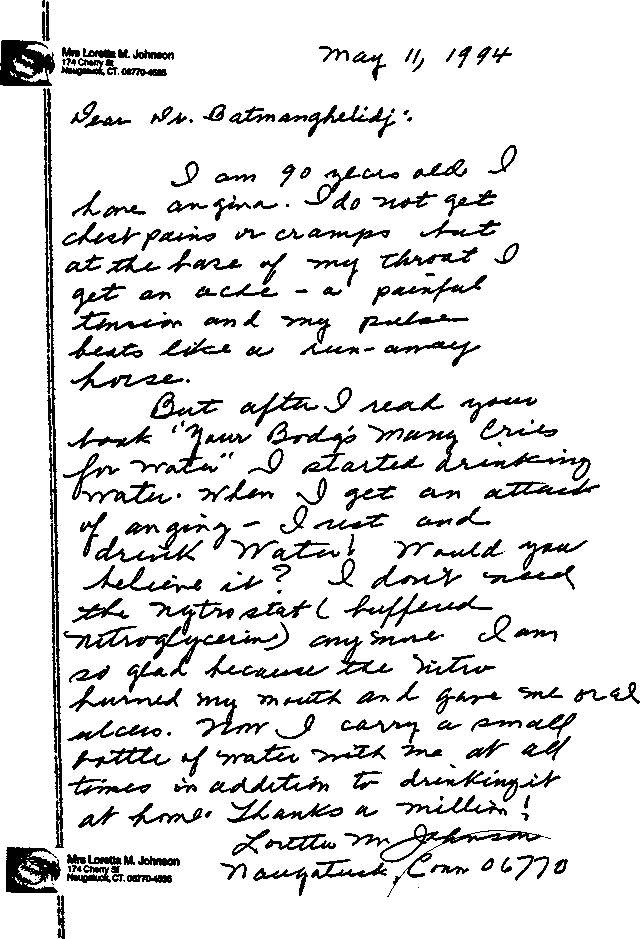 Mrs Loretta M. Johnson
174 Cherry St
Naugatuck, CT. 06770-4595
May 11, 1994
Dear Dr. Batmanghelidj:
I am 90 years old I
have angina. I do not get
chest pains or cramps but
at the base of my throat I
get an ache - a painful
tension and my pulse
beats like a run-away
horse.
But after I read your
book "Your Body's Many Cries
for Water" I started drinking
water. When I get an attack
of anging - I rest and
drink Water! Would you
believe it? I don't need
the nytrostat (buffered
nitroglycerine) anymore I am
so glad because the nitro
burned my mouth and gave me oral
ulcers. Now I carry a small
bottle of water with me at all
times in addition to drinking it
at home. Thanks a million!
Loretta M. Johnson
Naugatuck, Conn 06770
Mrs Loretta M. Johnson
174 Cherry St
Naugatuck, CT. 06770-4595